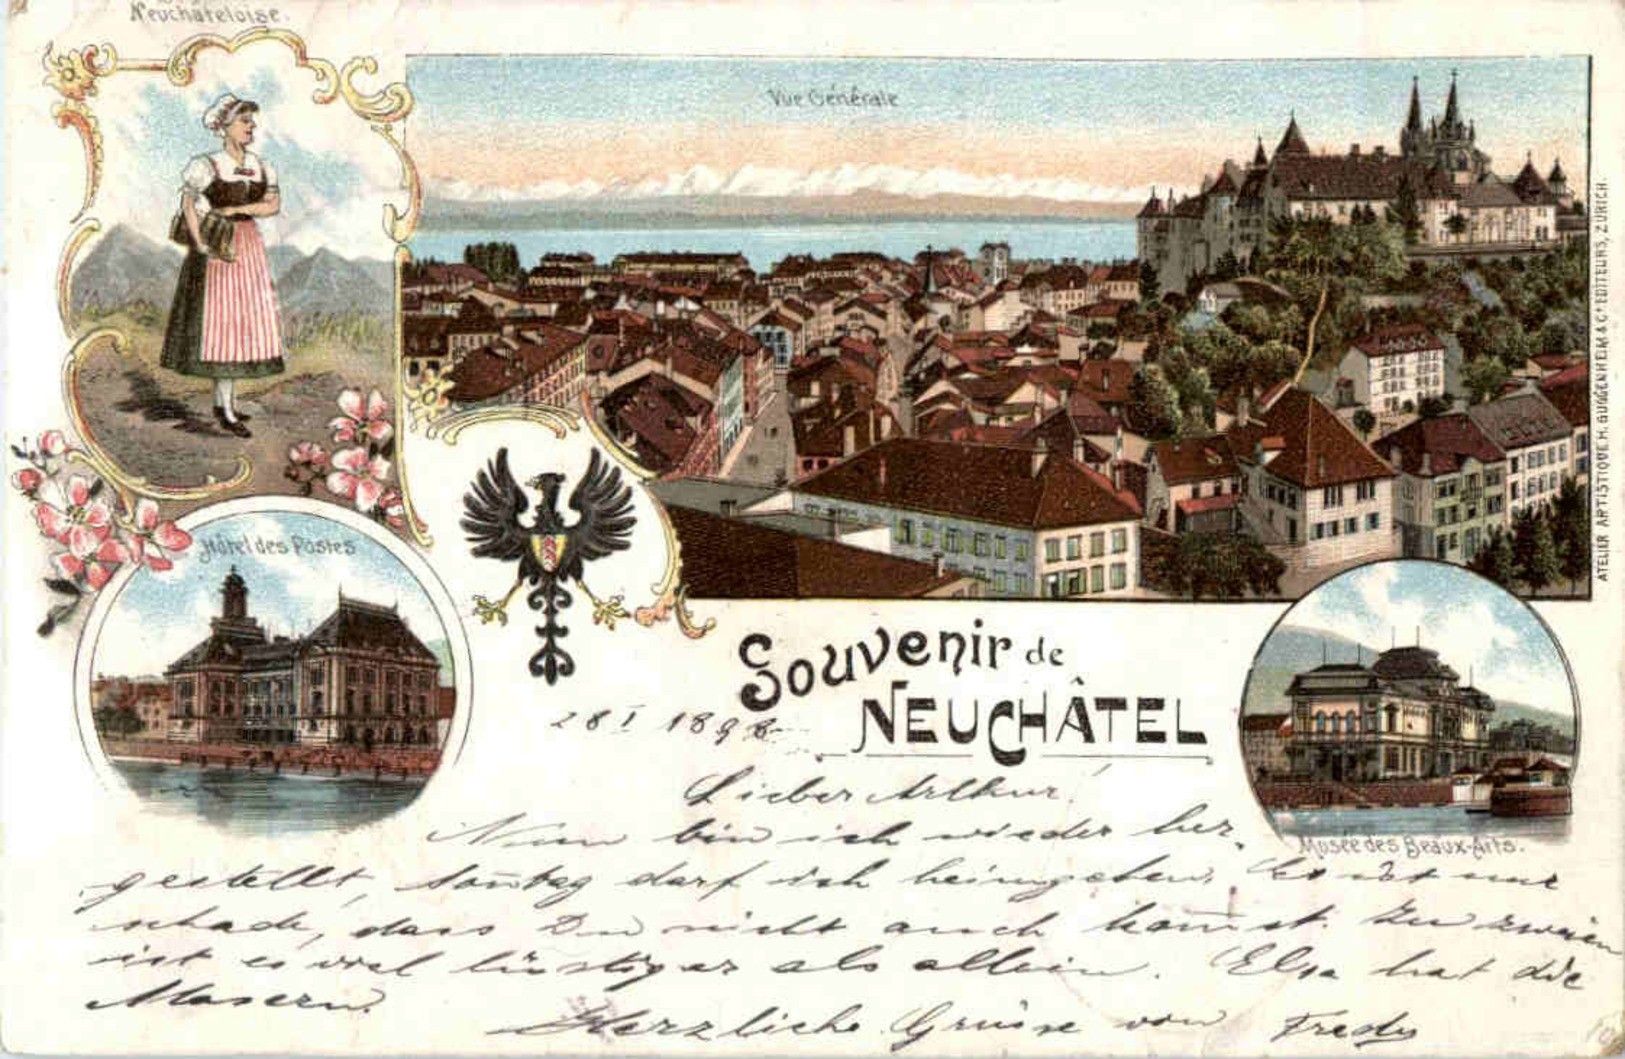 Neuchâteloise.
Vue Générale
Hôtel des Postes
ATELIER ARTISTIQUE H. GUGGENHEIM & Cie EDITEURS, ZURICH.
Souvenir de
NEUCHÂTEL
28 I 1898
Musée des Beaux-Arts.
Lieber Arthur!
Nun bin ich wieder her-
gestellt, Sontag darf ich heimgehen. Es ist nur
schade, dass Du nicht auch komst. Zu zweien
ist es viel lüstiger als allein. Elsa hat die
Masern.
Herzliche Grüsse von Fredy